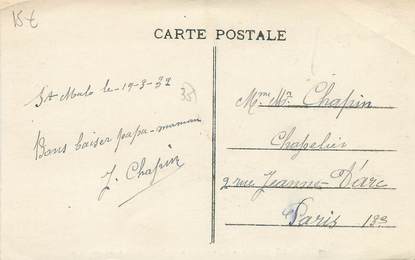 15€
CARTE POSTALE
St Malo le 19-3-32
35
Bons baiser papa-maman
J. Chapin
Mme Mr Chapin
Chapelier
2 rue Jeanne-D'arc
Paris 13e